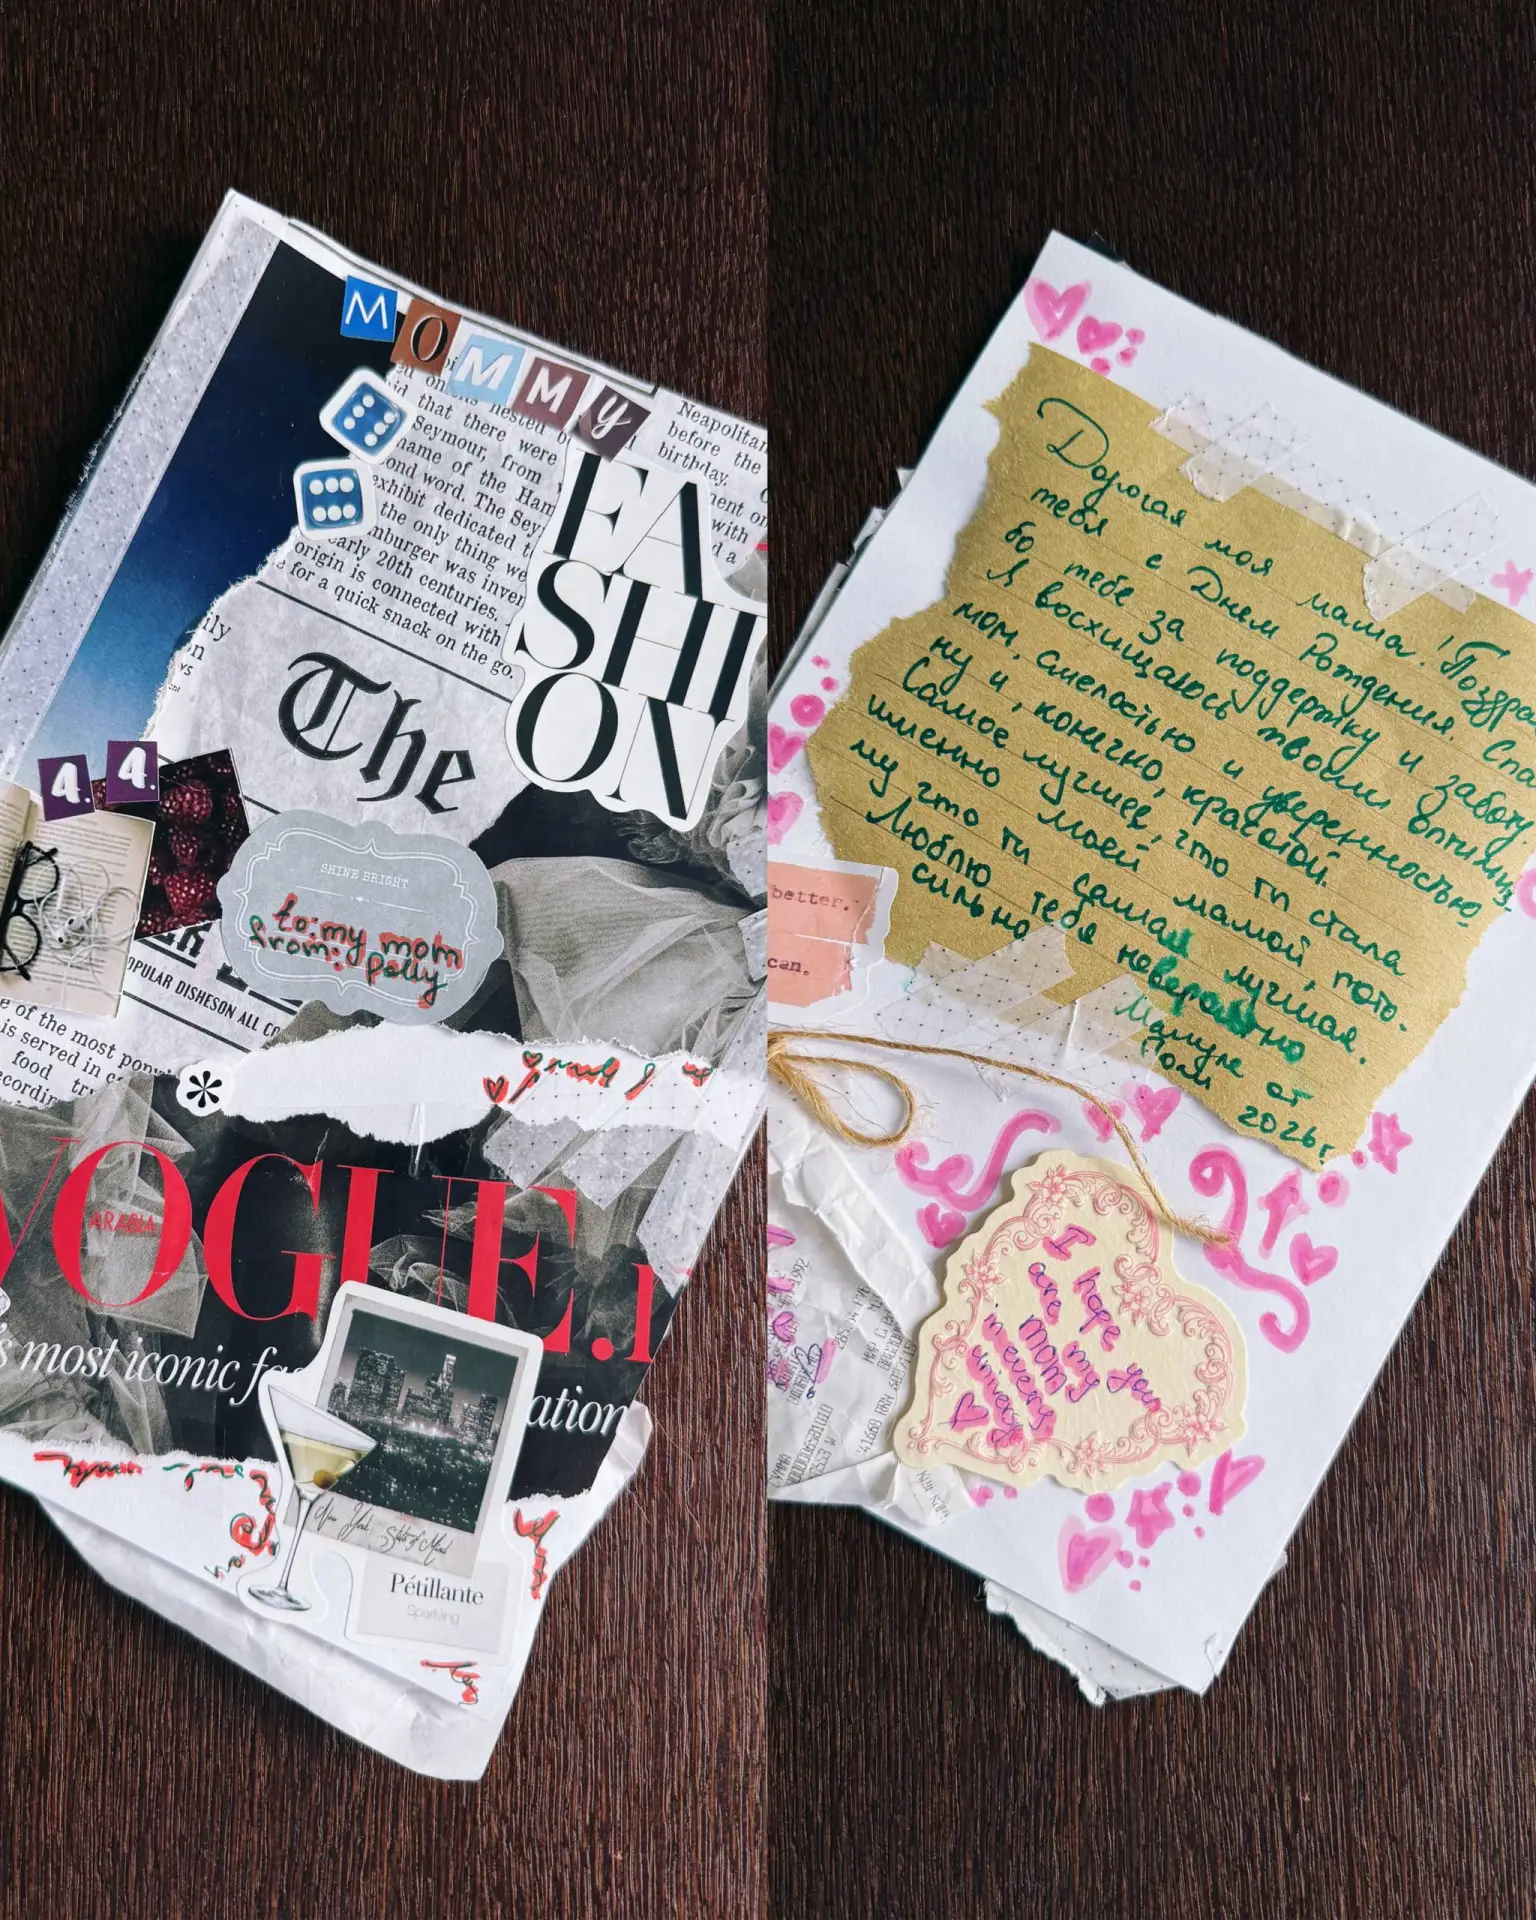 MOMMY
Neapolitan
before the
birthday.
nested
on
that there were
Seymour, from
name of the Ham
ond word. The Sey
exhibit dedicated t
the only thing we
mburger was inven
early 20th centuries.
origin is connected with
e for a quick snack on the go.
with
FA
SHI
ON
ily
The
4. 4.
SHINE BRIGHT
to: my mom
from: polly
OPULAR DISHESON ALL CO
e of the most popu
is served in c
food
ecordin
*
VOGUE.
ARABIA
s most iconic fa
ation
New York State of Mind
Pétillante
Sparkling
Дорогая моя мама! Поздра
тебя с Днем Рождения. Спа
бо тебе за поддержку и заботу.
Я восхищаюсь твоим оптимиз-
мом, смелостью и уверенностью
ну и, конечно, красотой.
Самое лучшее, что ты стала
именно моей мамой, пото-
му что ты самая лучшая.
Люблю тебя невероятно
сильно
Мамуле от
Поли
2026г.
better.
can.
I hope you
are my
MOM
in every
universe